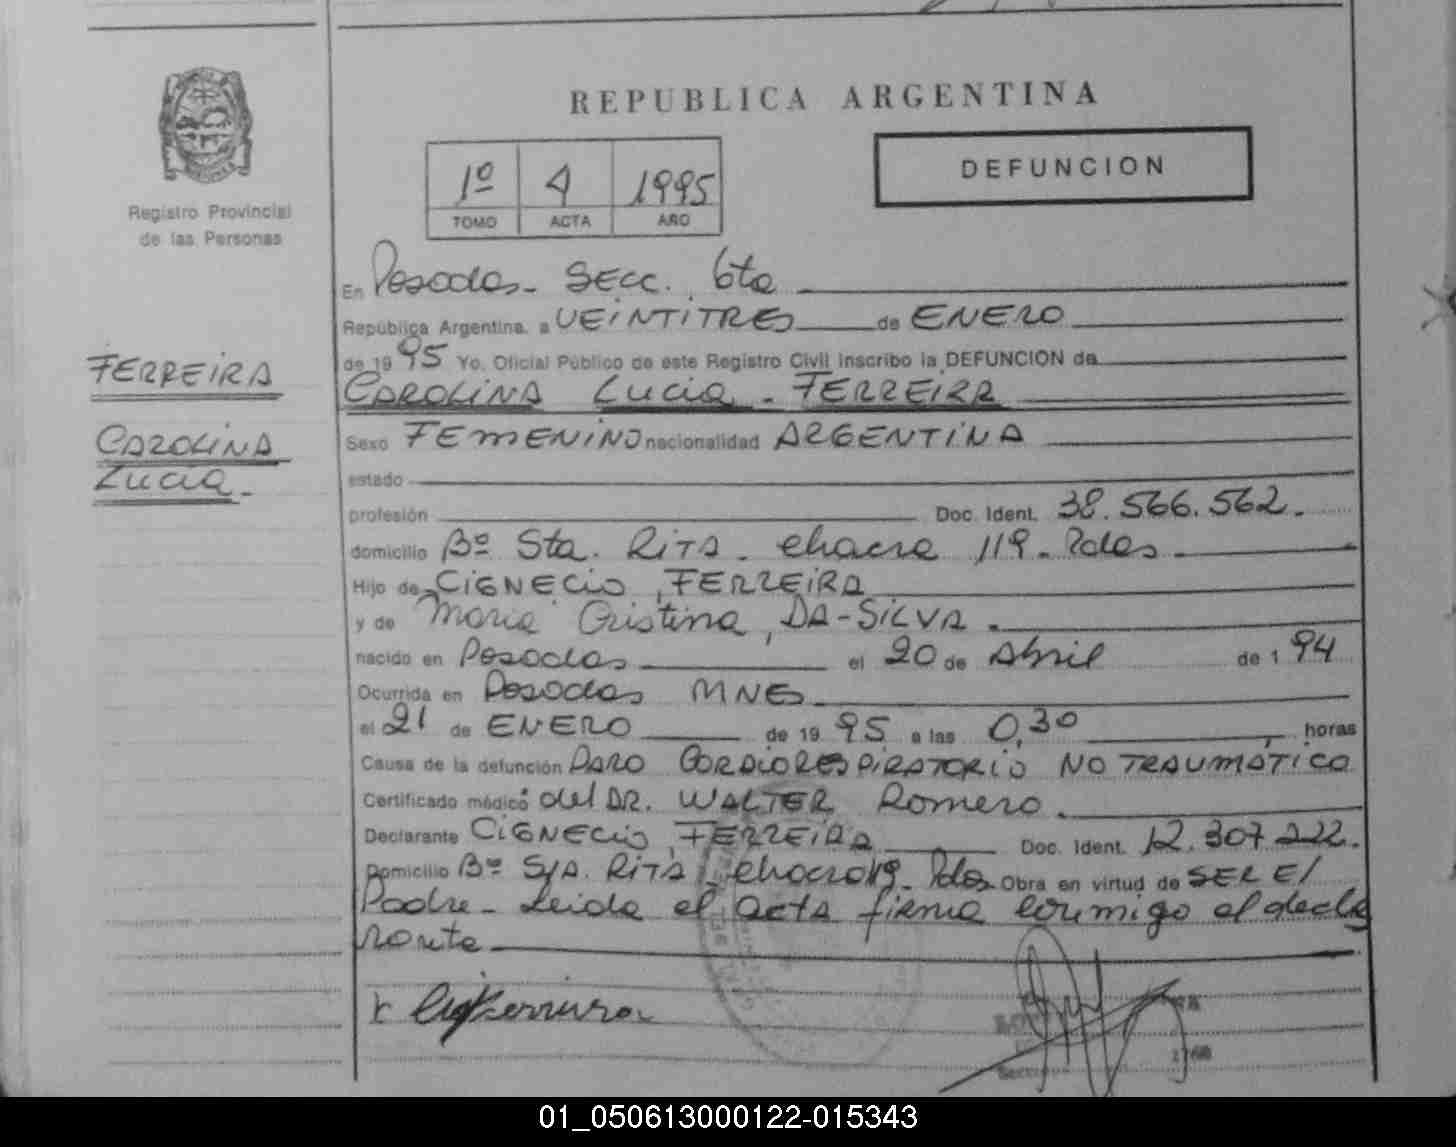 REPUBLICA ARGENTINA
1º 4 1995
TOMO ACTA AÑO
DEFUNCION
Registro Provincial
de las Personas
FERREIRA
CAROLINA
Lucia.
En Posadas - SECC. 6ta
República Argentina, a VEINTITRES de ENERO
de 19 95 Yo, Oficial Público de este Registro Civil inscribo la DEFUNCION de
CAROLINA Lucia - FERREIRA
Sexo FEMENINO nacionalidad ARGENTINA
estado
profesión Doc. Ident. 38.566.562.
domicilio Bº Sta. RITA - chacra 119 - Pdas -
Hijo de CIGNECIO, FERREIRA
y de Maria Cristina, DA-SILVA -
nacido en Posadas el 20 de Abril de 1 94
Ocurrida en Posadas MNES
el 21 de ENERO de 19 95 a las 0,30 horas
Causa de la defunción PARO CORDIORESPIRATORIO NO TRAUMATICO
Certificado médico del DR. WALTER Romero.
Declarante CIGNECIO, FERREIRA Doc. Ident. 12.307.222.
Domicilio Bº S/A. RITA - chacra 119 - Pdas Obra en virtud de SER El
Padre - Leida el acta firma conmigo el decla
rante
01_050613000122-015343